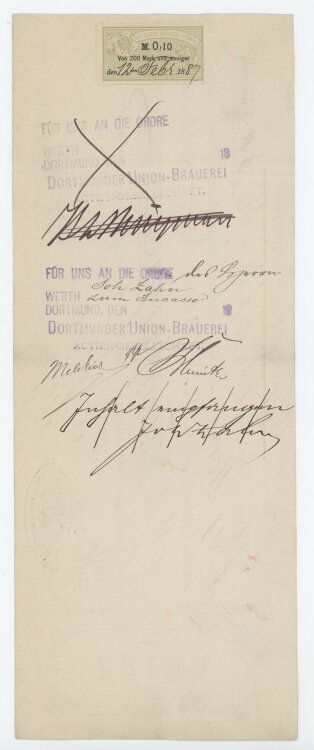 M. 0,10
Von 200 Mark und weniger
den 12ten Febr. 1887
FÜR UNS AN DIE ORDRE
WERTH
DORTMUND, DEN 18
DORTMUNDER UNION-BRAUEREI
ACTIEN-GESELLSCHAFT.
FÜR UNS AN DIE ORDRE des Herrn
Joh Zahn
WERTH zum Incasso
DORTMUND, DEN 18
DORTMUNDER UNION-BRAUEREI
ACTIEN-GESELLSCHAFT.
Inhalt empfangen
Joh Zahn